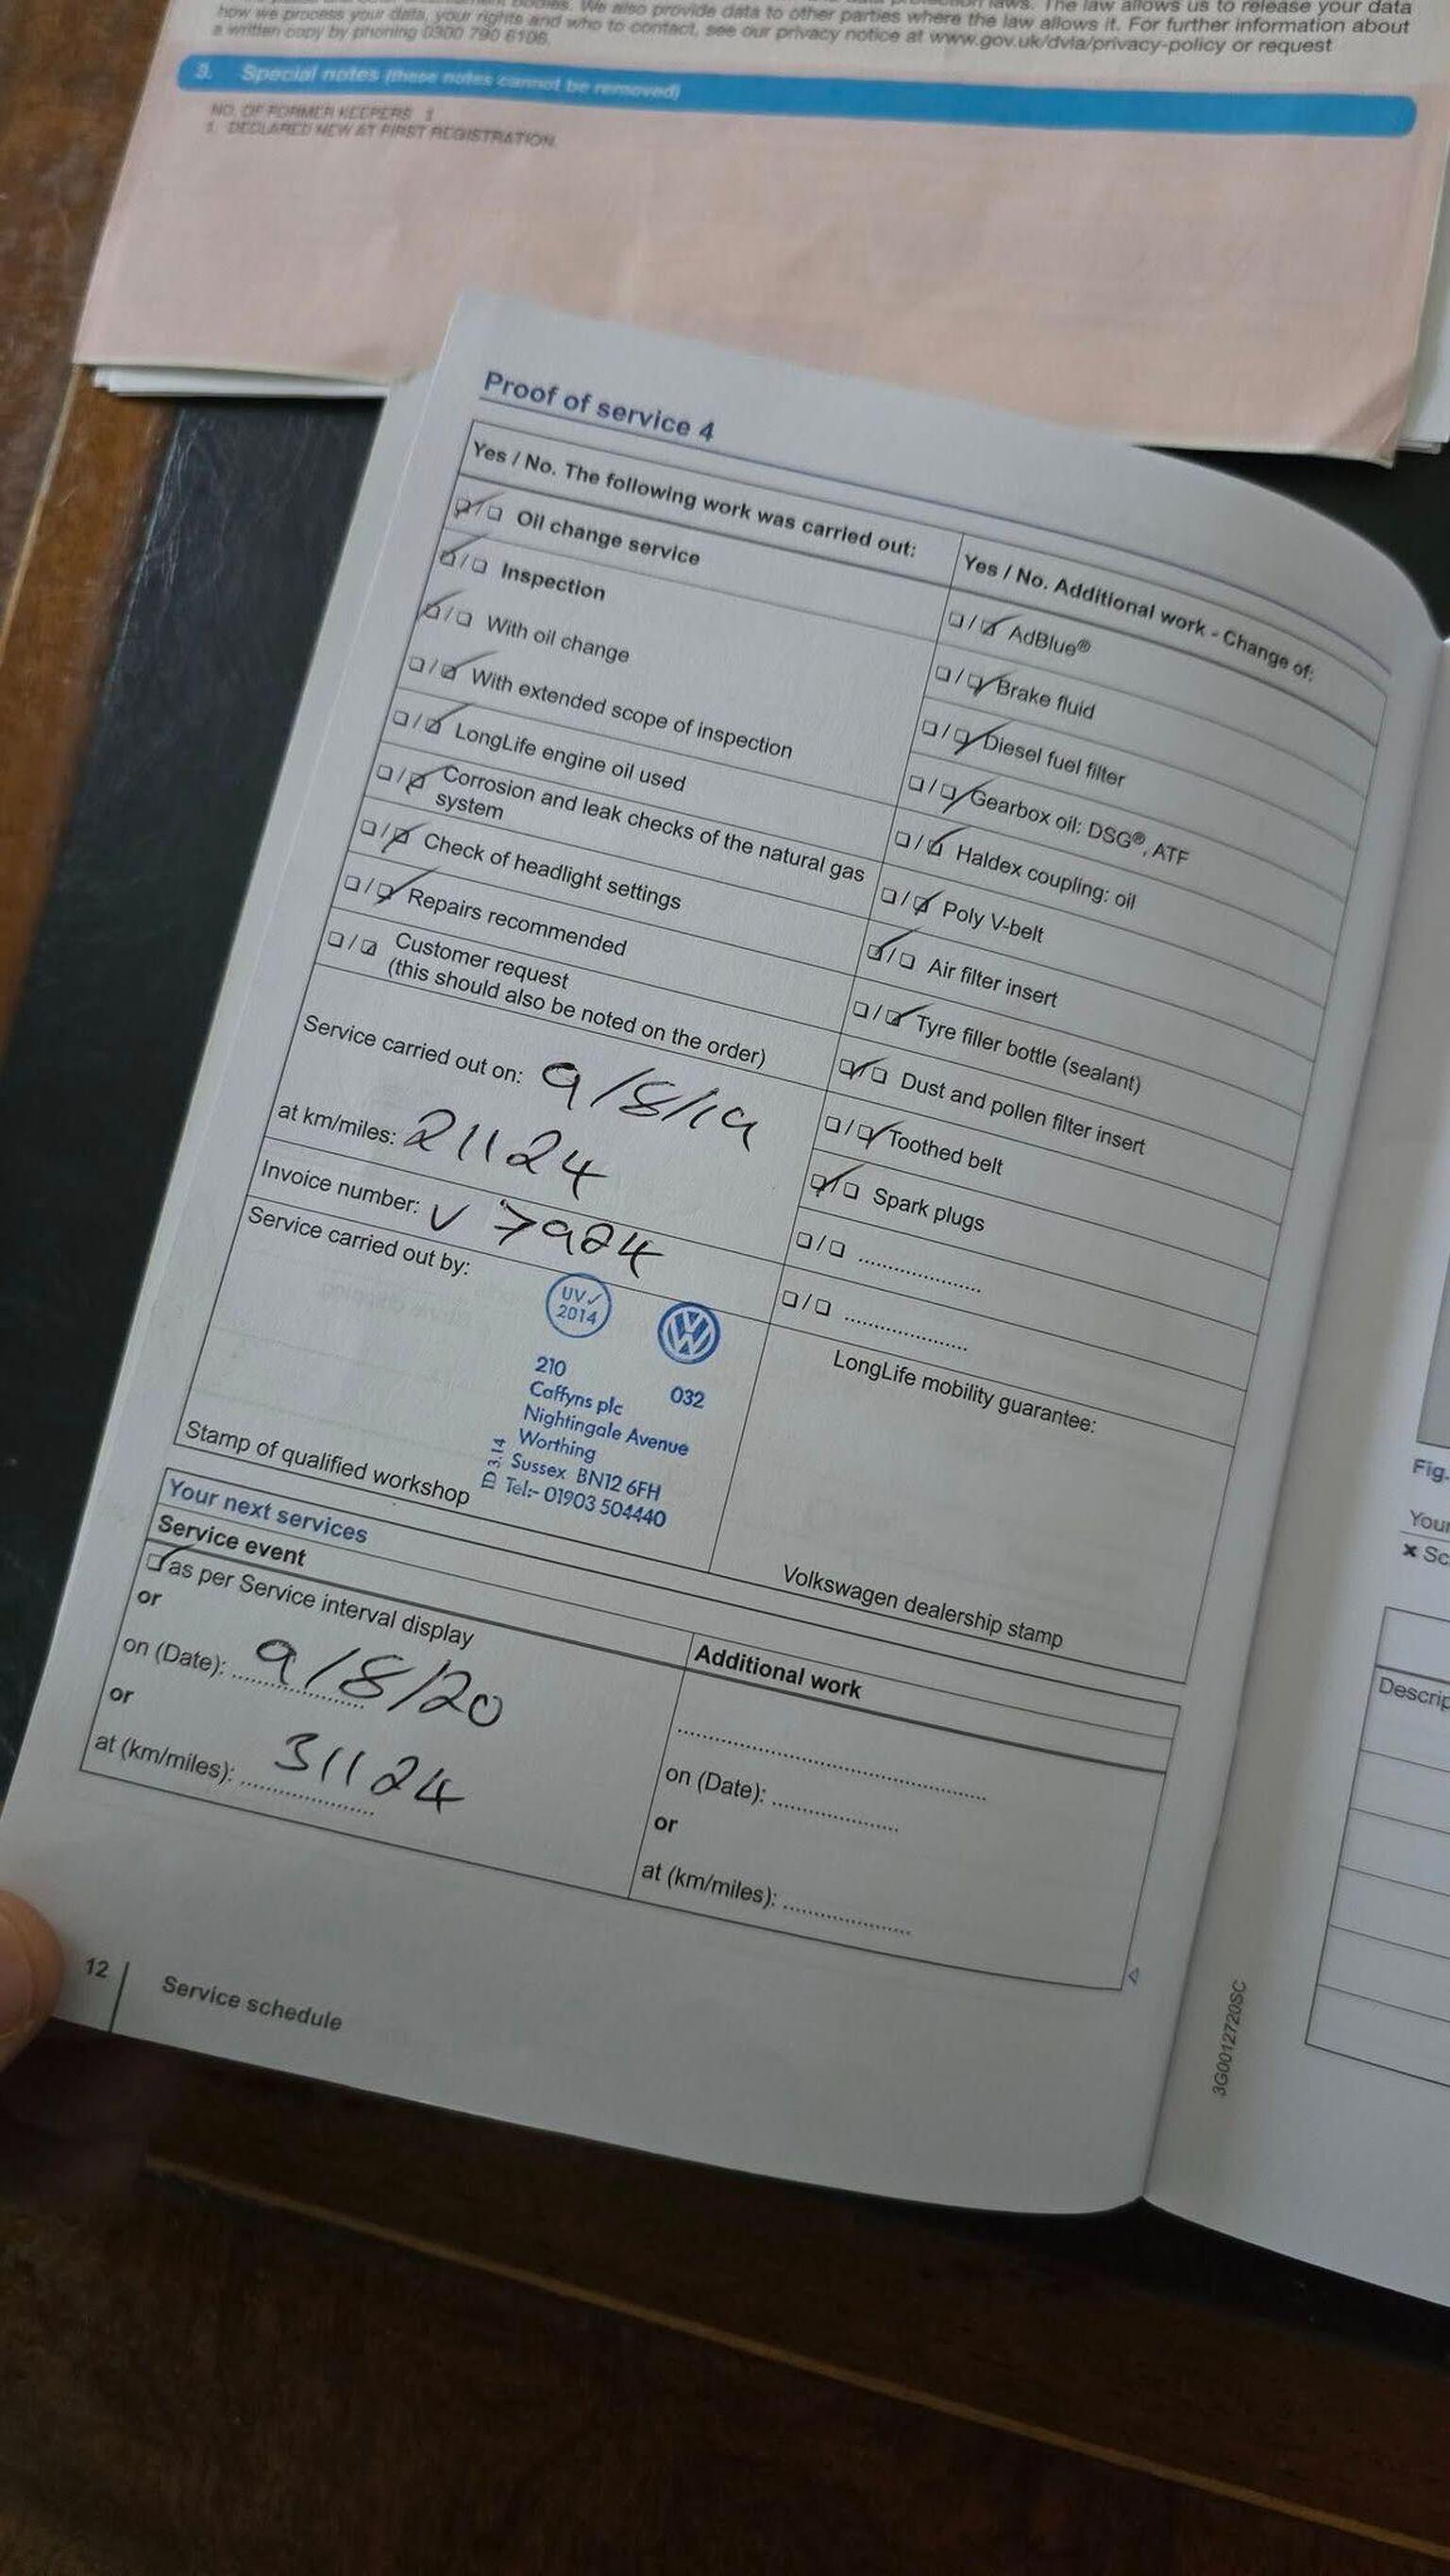 laws. The law allows us to release your data
how we process your data, your rights and who to contact, see our privacy notice at www.gov.uk/dvla/privacy-policy or request
bodies. We also provide data to other parties where the law allows it. For further information about
a written copy by phoning 0300 790 6106.
3. Special notes (these notes cannot be removed)
NO. OF FORMER KEEPERS
1. DECLARED NEW AT FIRST REGISTRATION.
Proof of service 4
Yes / No. The following work was carried out:
Oil change service
Inspection
With oil change
With extended scope of inspection
LongLife engine oil used
Corrosion and leak checks of the natural gas
system
Check of headlight settings
Repairs recommended
Customer request
(this should also be noted on the order)
Yes / No. Additional work - Change of:
AdBlue®
Brake fluid
Diesel fuel filter
Gearbox oil: DSG®, ATF
Haldex coupling: oil
Poly V-belt
Air filter insert
Tyre filler bottle (sealant)
Dust and pollen filter insert
Toothed belt
Spark plugs
Service carried out on: 9/8/19
at km/miles: 21124
Invoice number: V 7924
Service carried out by:
UV✓
2014
210
032
Caffyns plc
Nightingale Avenue
Worthing
Sussex BN12 6FH
Tel:- 01903 504440
ID 3.14
Stamp of qualified workshop
LongLife mobility guarantee:
Volkswagen dealership stamp
Your next services
Service event
as per Service interval display
or
on (Date): 9/8/20
or
at (km/miles): 31124
Additional work
on (Date):
or
at (km/miles):
12 | Service schedule
3G0012720SC
Fig.
Your
× Sc
Descrip